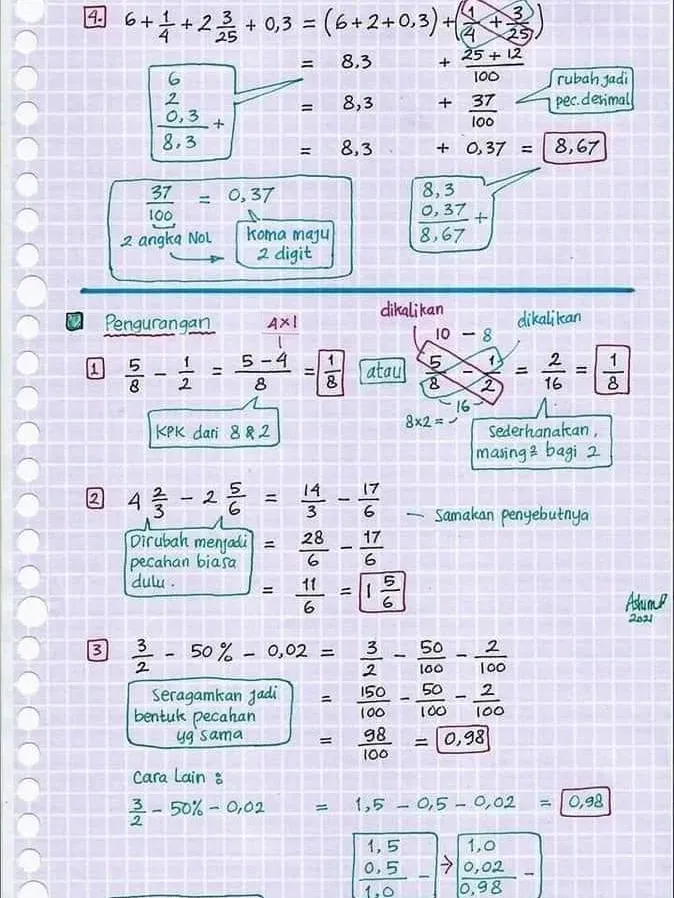 4. 6 + 1/4 + 2 3/25 + 0,3 = (6 + 2 + 0,3) + (1/4 + 3/25)
= 8,3 + (25 + 12)/100
6
2
0,3 +
8,3
= 8,3 + 37/100
rubah jadi
pec. desimal
= 8,3 + 0,37 = 8,67
37/100 = 0,37
2 angka NOL
koma maju
2 digit
8,3
0,37 +
8,67
Pengurangan
4x1
1 5/8 - 1/2 = (5 - 4)/8 = 1/8
KPK dari 8 & 2
atau
dikalikan
dikalikan
10 - 8
5/8 - 1/2 = 2/16 = 1/8
16
8x2 =
Sederhanakan,
masing2 bagi 2
2 4 2/3 - 2 5/6 = 14/3 - 17/6
Samakan penyebutnya
Dirubah menjadi
pecahan biasa
dulu.
= 28/6 - 17/6
= 11/6 = 1 5/6
AshimP
2021
3 3/2 - 50% - 0,02 = 3/2 - 50/100 - 2/100
Seragamkan jadi
bentuk pecahan
yg sama
= 150/100 - 50/100 - 2/100
= 98/100 = 0,98
Cara Lain :
3/2 - 50% - 0,02 = 1,5 - 0,5 - 0,02 = 0,98
1,5
0,5 -
1,0
→
1,0
0,02 -
0,98